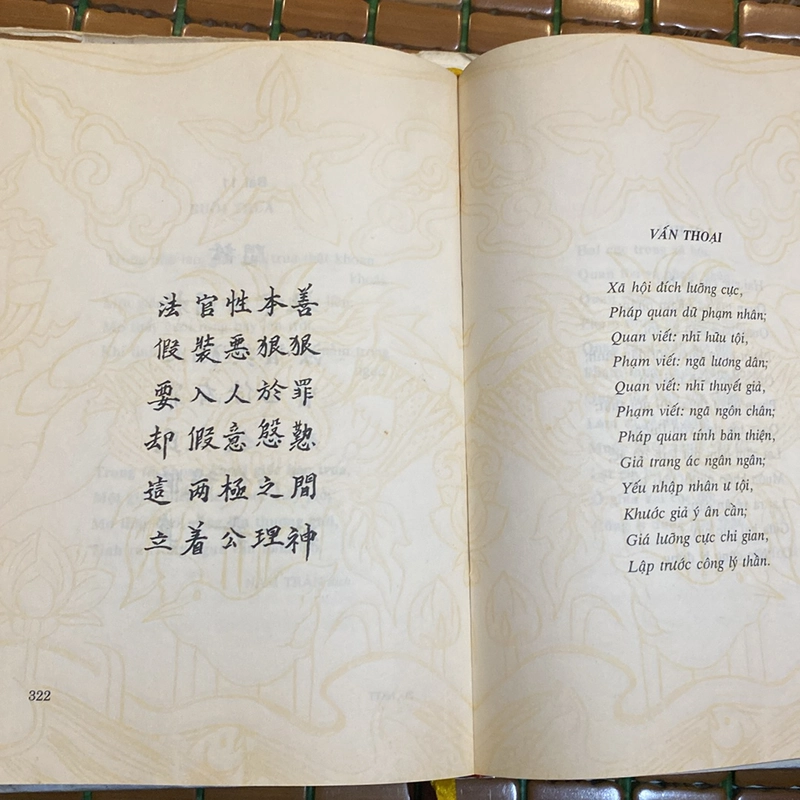 法官性本善
假裝惡狠狠
要入人於罪
却假意慇懃
這两極之間
立着公理神
322
VẤN THOẠI
Xã hội đích lưỡng cực,
Pháp quan dữ phạm nhân;
Quan viết: nhĩ hữu tội,
Phạm viết: ngã lương dân;
Quan viết: nhĩ thuyết giả,
Phạm viết: ngã ngôn chân;
Pháp quan tính bản thiện,
Giả trang ác ngân ngân;
Yếu nhập nhân ư tội,
Khước giả ý ân cần;
Giá lưỡng cực chi gian,
Lập trước công lý thần.